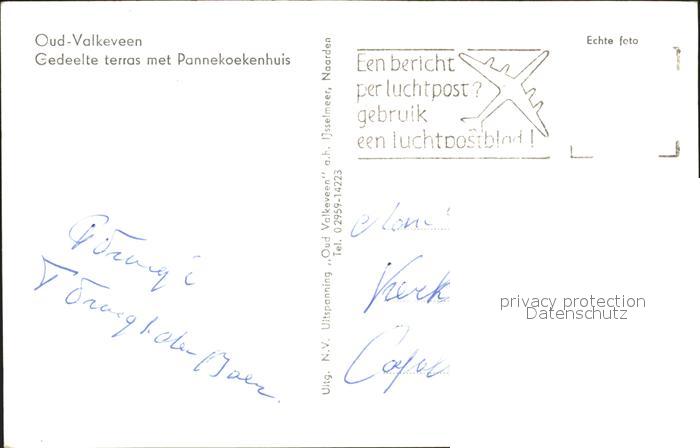 Oud-Valkeveen
Gedeelte terras met Pannekoekenhuis
Uitg. N.V. Uitspanning „Oud Valkeveen” a.h. IJsselmeer, Naarden
Tel. 02959-14223
Een bericht
per luchtpost?
gebruik
een luchtpostblad!
Echte foto
Kerk
privacy protection
Datenschutz